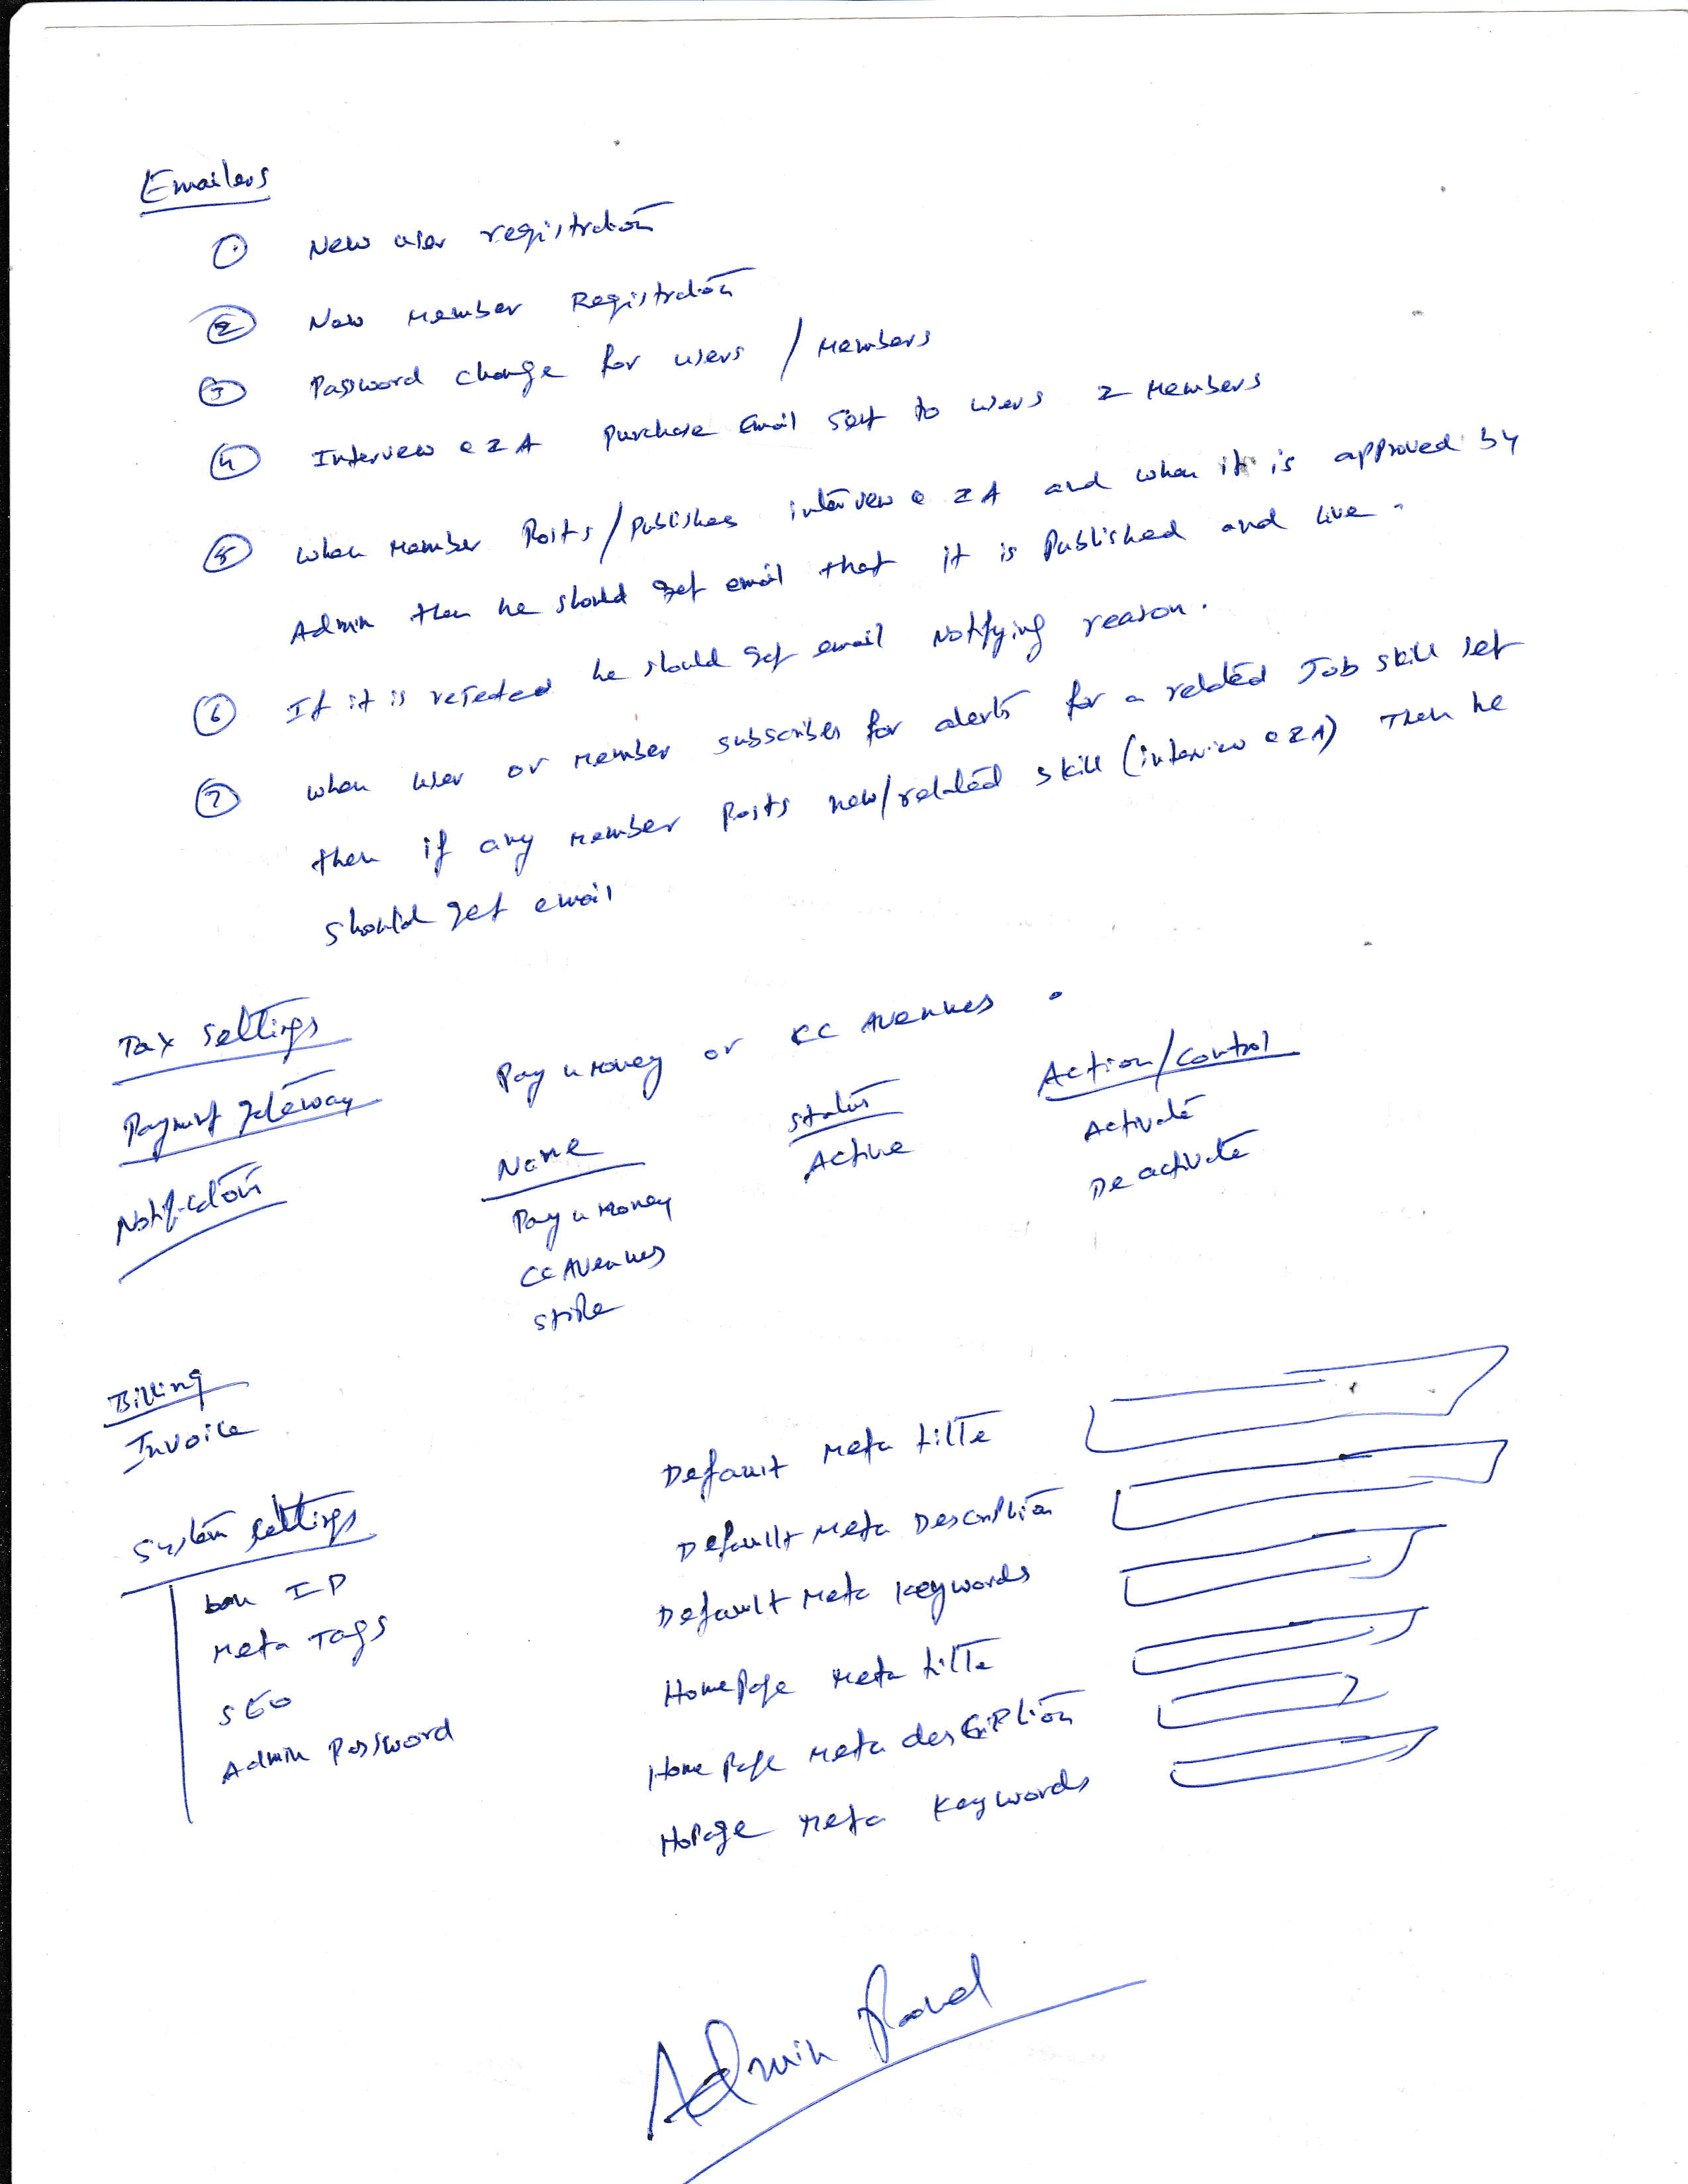 Emailers
① New user registration
② New Member Registration
③ Password change for users / Members
④ Interview Q & A Purchase Email sent to users & Members
⑤ when Member Posts/Publishes interview Q & A and when it is approved by
Admin then he should get email that it is Published and live.
⑥ If it is rejected he should get email Notifying reason.
⑦ when user or Member subscribes for alerts for a related Job skill set
then if any Member Posts new/related skill (interview Q & A) Then he
should get email
Tax settings
Payment gateway Pay u Money or CC Avenues.
Notification Name Status Action/Control
Pay u Money Active Activate
CC Avenues De activate
Billing
Invoice
System settings
IP
Meta Tags
SEO
Admin Password
Default Meta title
Default Meta Description
Default Meta Keywords
HomePage Meta title
Home Page Meta description
HoPage Meta Keywords
Admin Panel